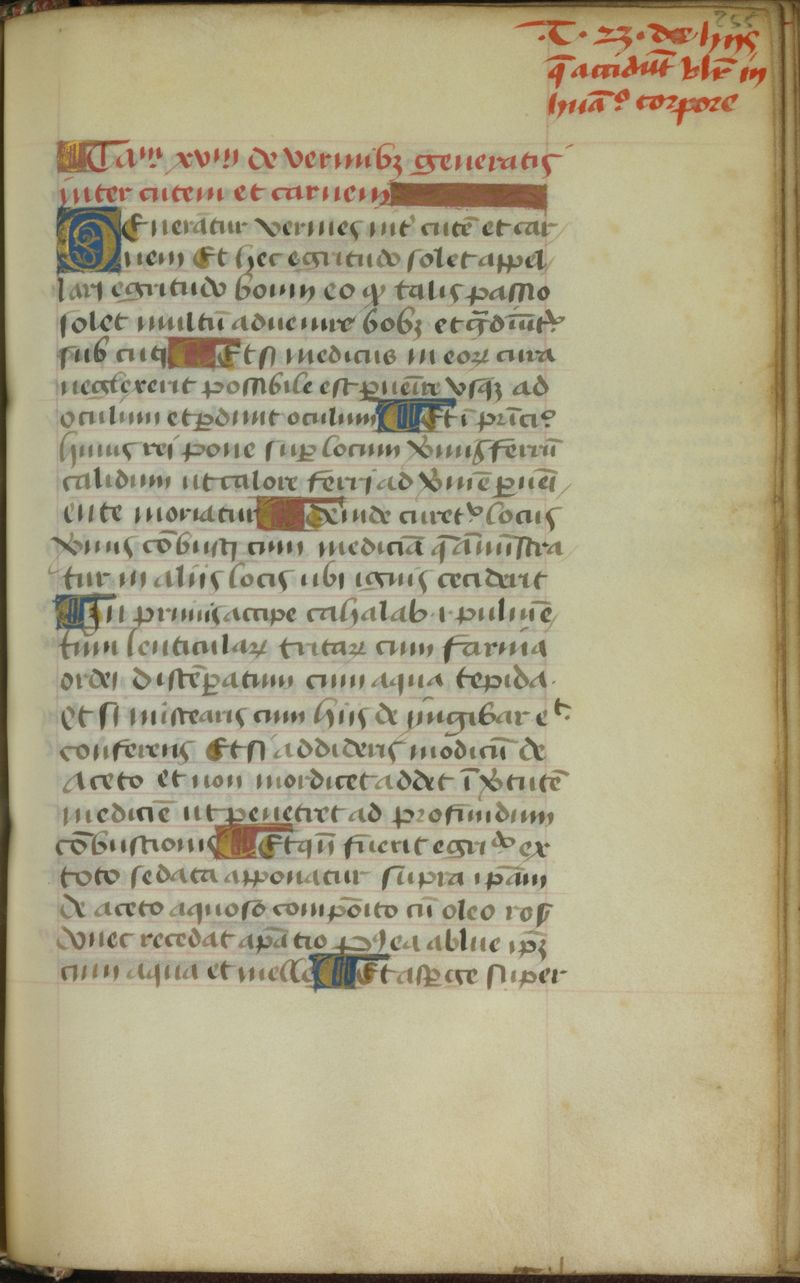 255
·T· 23· de hijs
q̄ accidūt vlr̄ in
huāo corpore
Cam xviii de vermibꝫ generatis
inter cutem et carnem
Generātur vermes int̄ cutē et car
nem Et hec egritudo solet appel
lari egritudo boum eo qꝫ talis passio
solet multū aduenire bobꝫ et grādiūtr
sub cuti Et si medicus in eoꝝ cura
neglexerit possibile est ꝑueīre vsqꝫ ad
oculum et ꝑdunt oculum Et ī prīcio
huius rei pone suꝑ locum vnius ferrū
calidum ut calore ferri ad vermē ꝑueī
ente moriatur deinde curetr locus
vnius cōbusti cum medicīa q̄ amīstra
tur in aliis locis ubi ignis ceciderit
In primis accipe cahalab ·i· pulmē
tum lenticulaꝝ tritaꝝ cum farina
ordei distēꝑatum cum aqua tepida·
et si miscearis cum hiis de jingibar et·
conferens Et si addideris modicū de
aceto et non mordicet addet ī v̄tutē
medicīe ut penetret ad profundum
cōbustionis Et qn̄ fuerit egrido ex
toto sedata apponatur supra ipām
de aceto aquoso compōito cū oleo ros̄
donec recedat apātio P9ea ablue ip̄ꝫ
cum aqua et melle Et asꝑge super